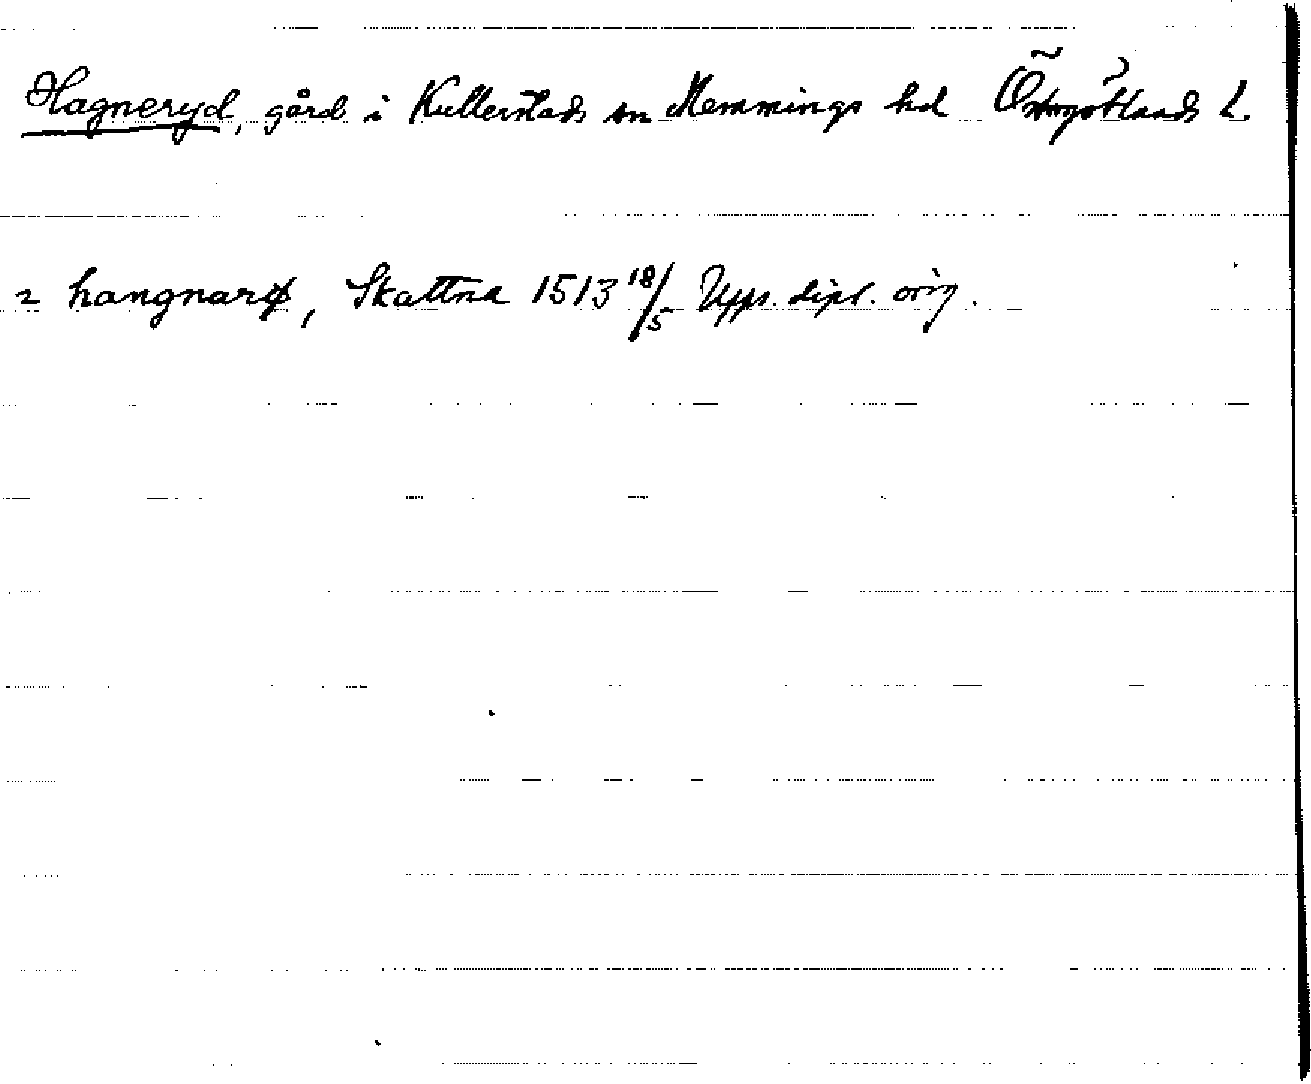 Hagneryd, gård i Kullerstads sn Memmings hd Östergötlands l.
2 hangnarø, Skattna 1513 18/5 Upps. dipl. orig.